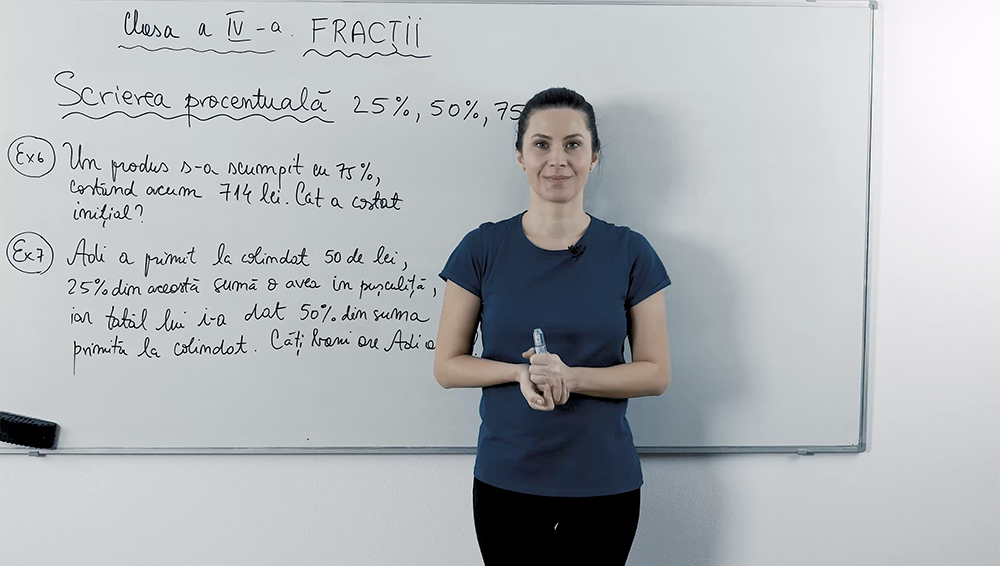 Clasa a IV-a. FRACȚII
Scrierea procentuală 25%, 50%, 75
Ex6 Un produs s-a scumpit cu 75%,
costând acum 714 lei. Cât a costat
inițial?
Ex7 Adi a primit la colindat 50 de lei,
25% din această sumă o avea în pușculiță,
iar tatăl lui i-a dat 50% din suma
primită la colindat. Câți bani are Adi